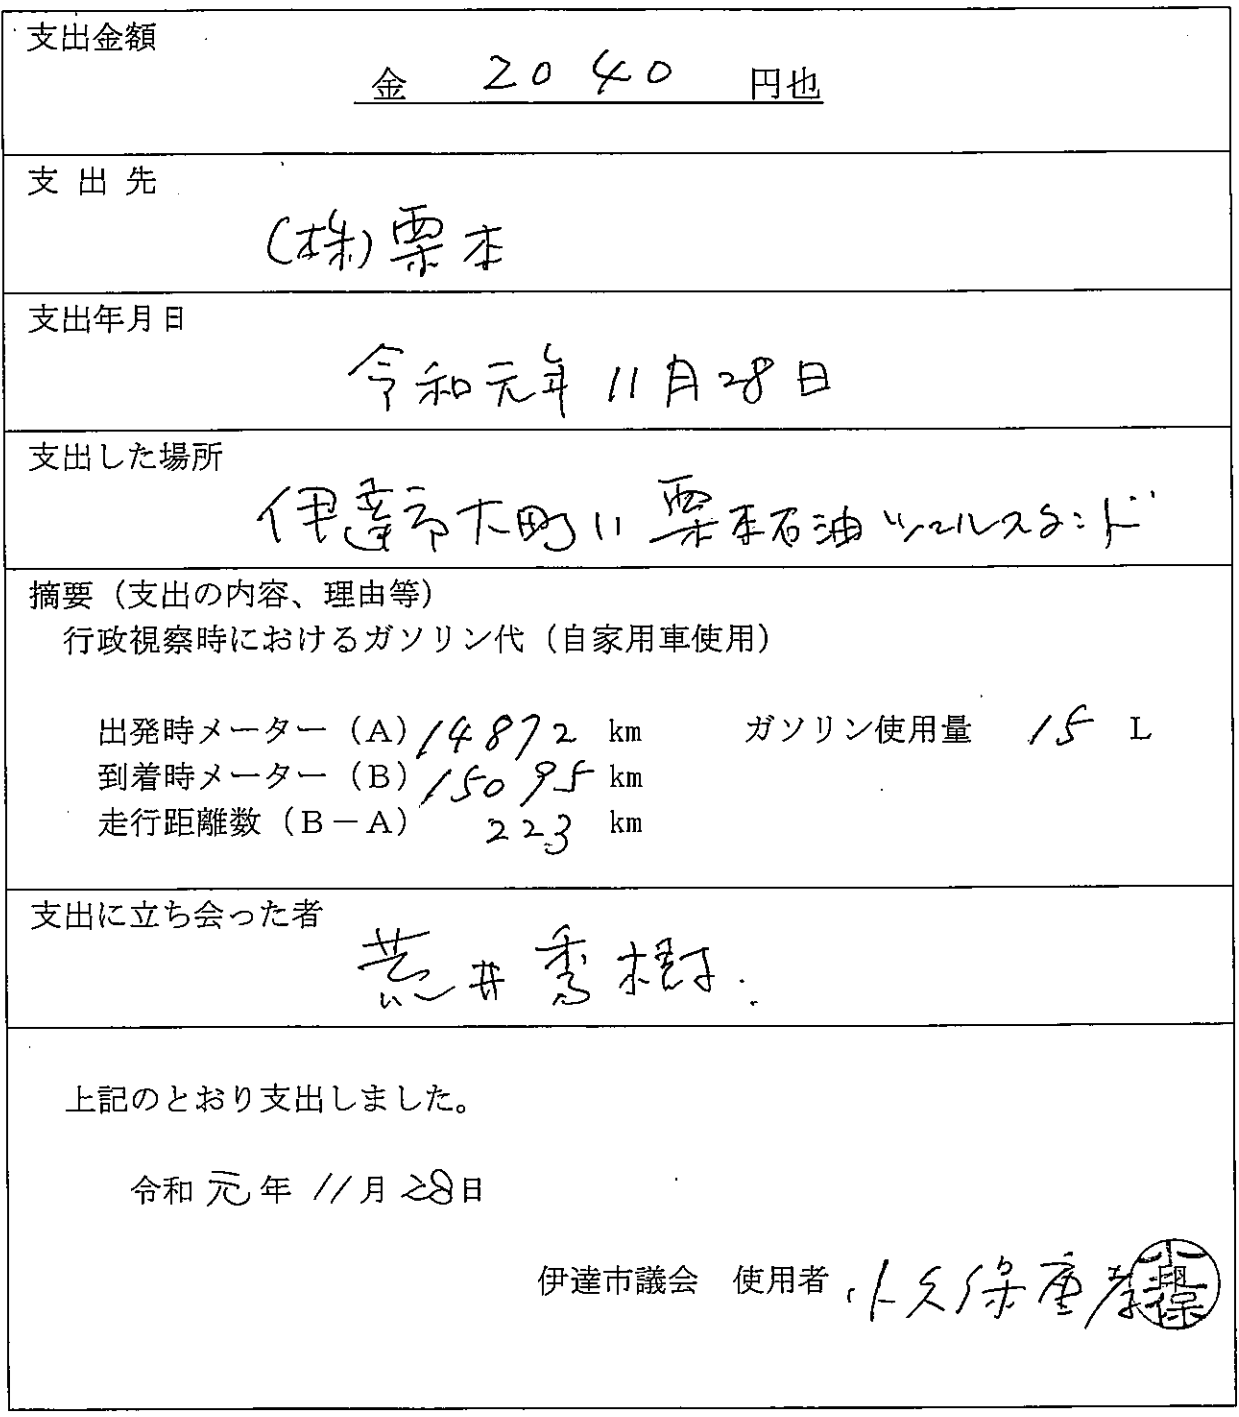 支出金額
金 2040 円也
支出先
(株)栗本
支出年月日
令和元年11月28日
支出した場所
伊達市大町11 栗本石油シェルスタンド
摘要（支出の内容、理由等）
行政視察時におけるガソリン代（自家用車使用）
出発時メーター（A）14872 km ガソリン使用量 15 L
到着時メーター（B）15095 km
走行距離数（B－A） 223 km
支出に立ち会った者
荒井香樹
上記のとおり支出しました。
令和元年11月28日
伊達市議会 使用者 小久保重孝